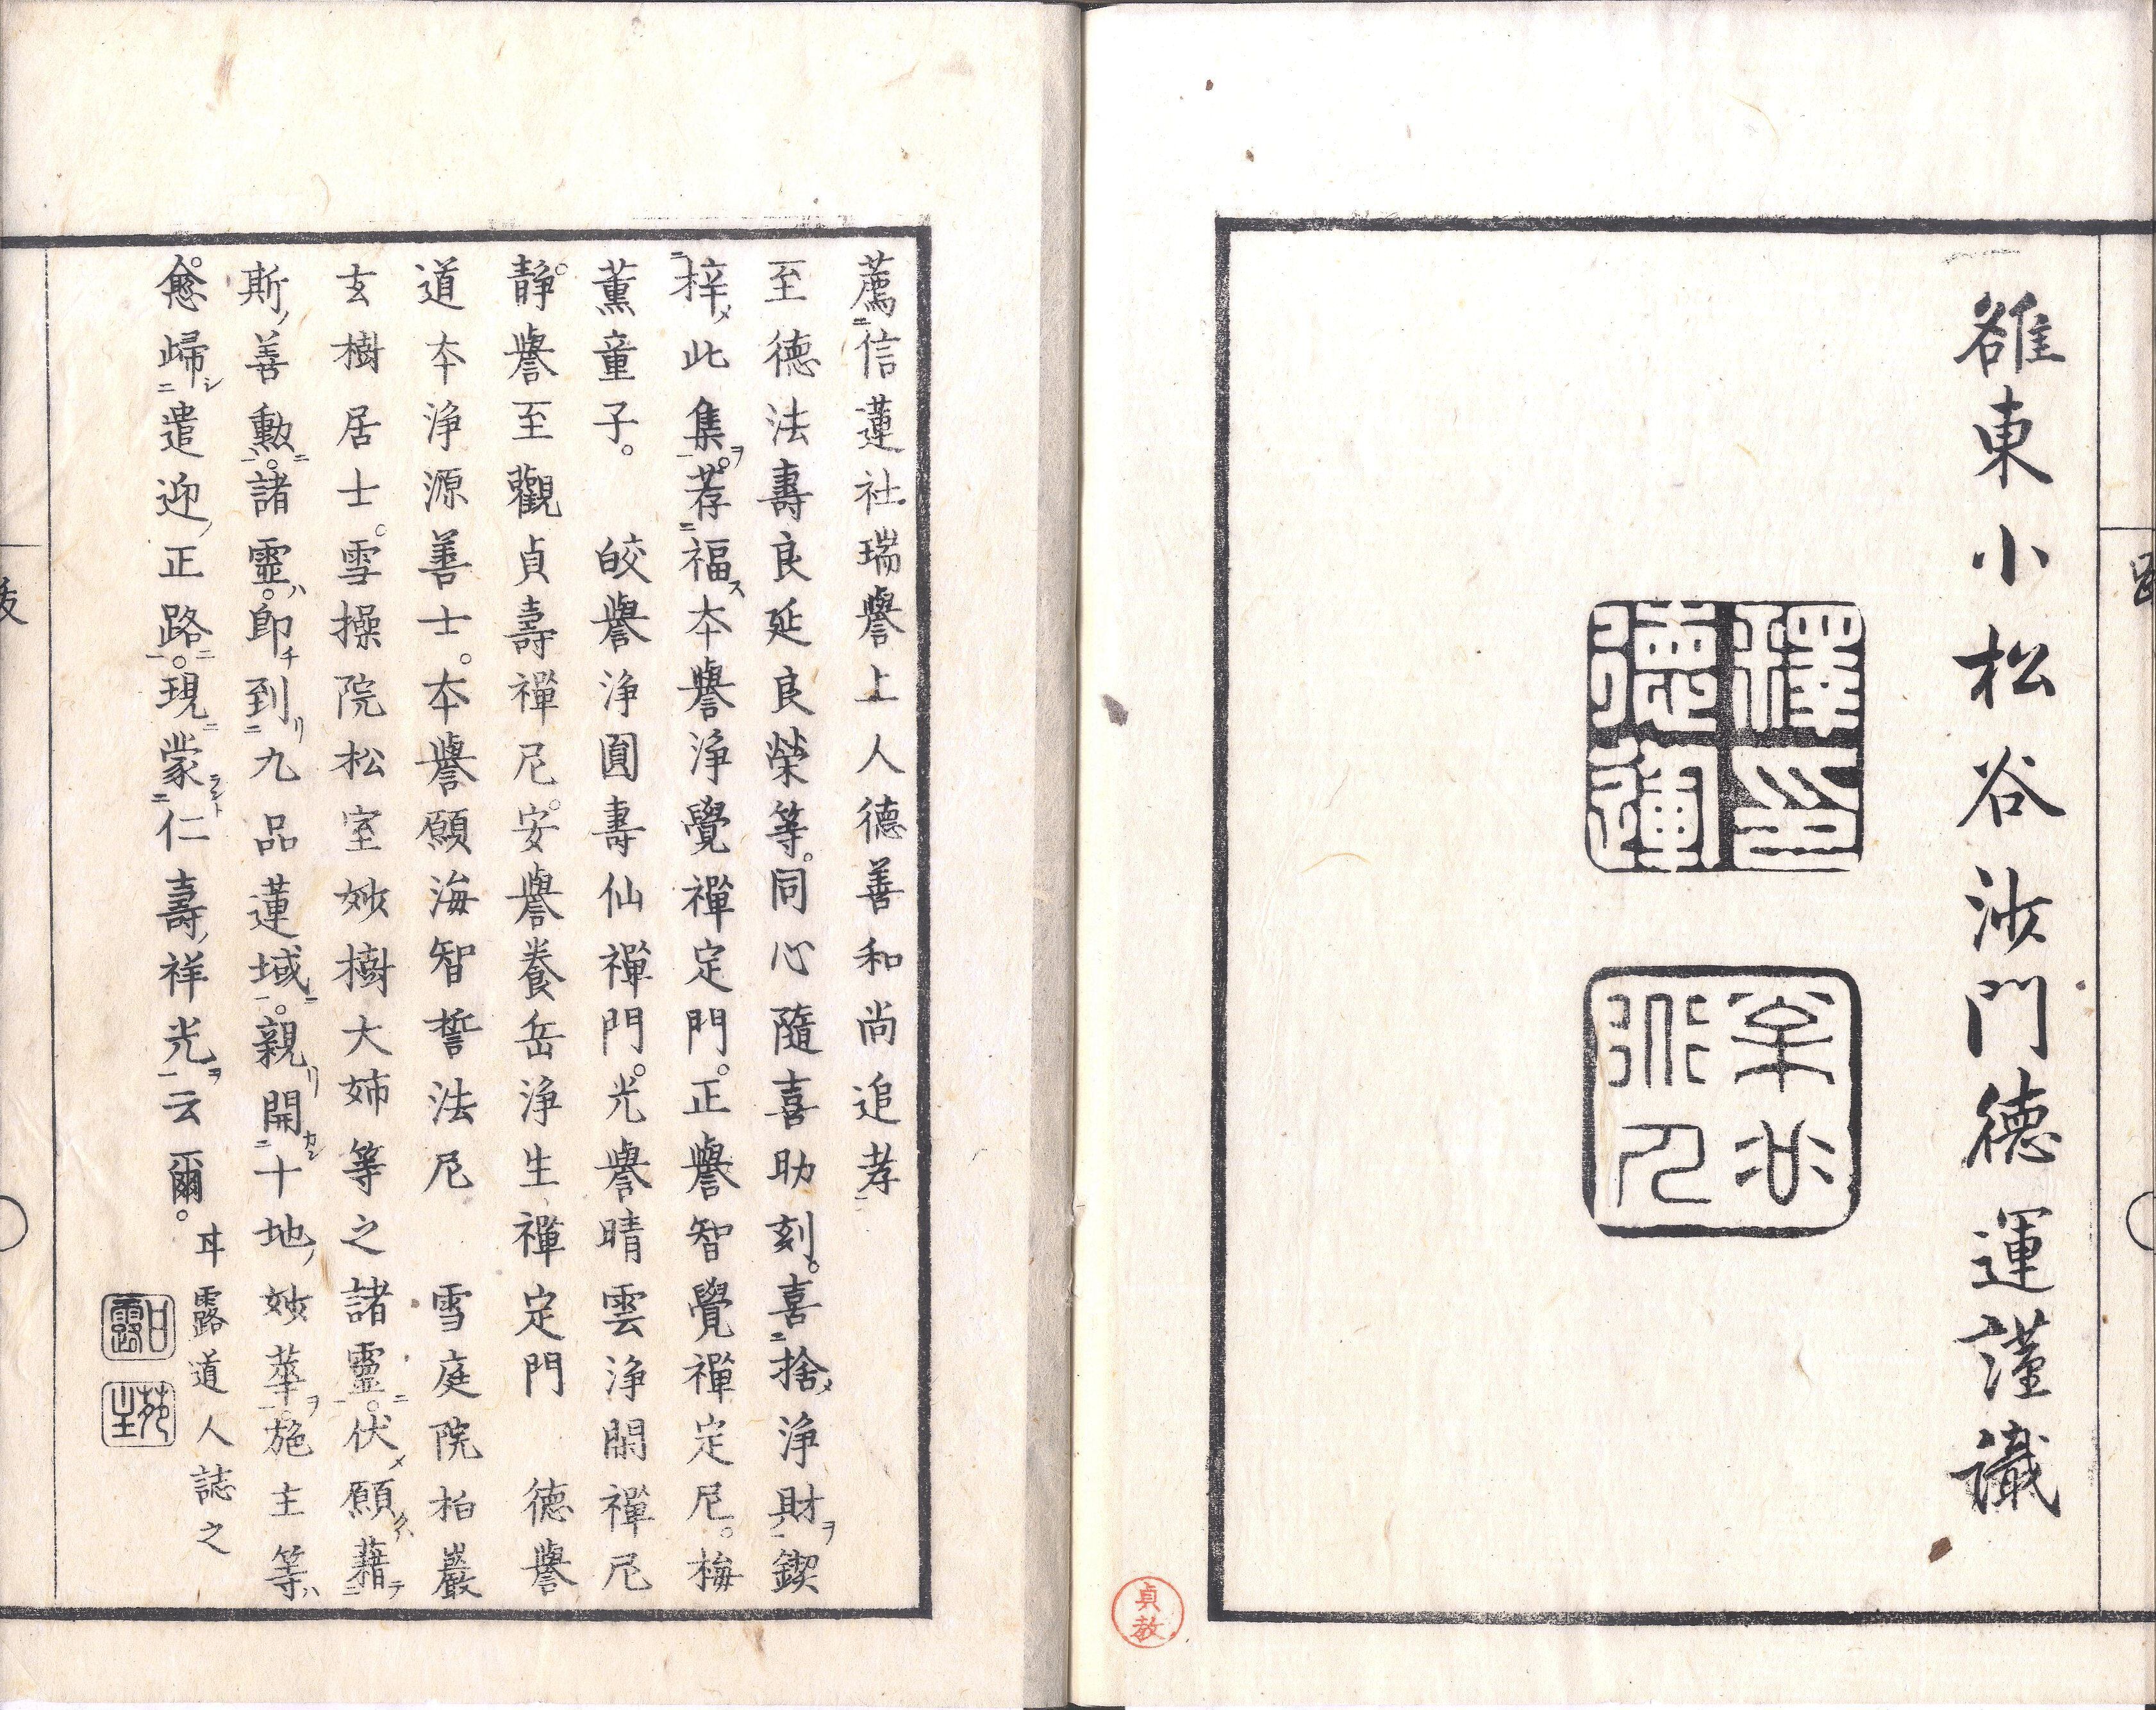 雒東小松谷沙門德運謹識
釋德運印
貞教
薦信蓮社瑞譽上人德善和尚追孝
至德法壽良延良榮等。同心隨喜助刻。喜捨淨財鍥
梓此集。荐福本譽淨覺禪定門。正譽智覺禪定尼。梅
薰童子。皎譽淨圓壽仙禪門。光譽晴雲淨閑禪尼
靜譽至觀貞壽禪尼。安譽養岳淨生禪定門 德譽
道本淨源善士。本譽願海智誓法尼 雪庭院柏巖
玄樹居士。雪操院松室妙樹大姉等之諸靈。伏願藉
斯善勲。諸靈。即到九品蓮域。親開十地妙華。施主等
愈歸遣迎正路。現蒙仁壽祥光云爾。
甘露道人誌之
甘露
苑主